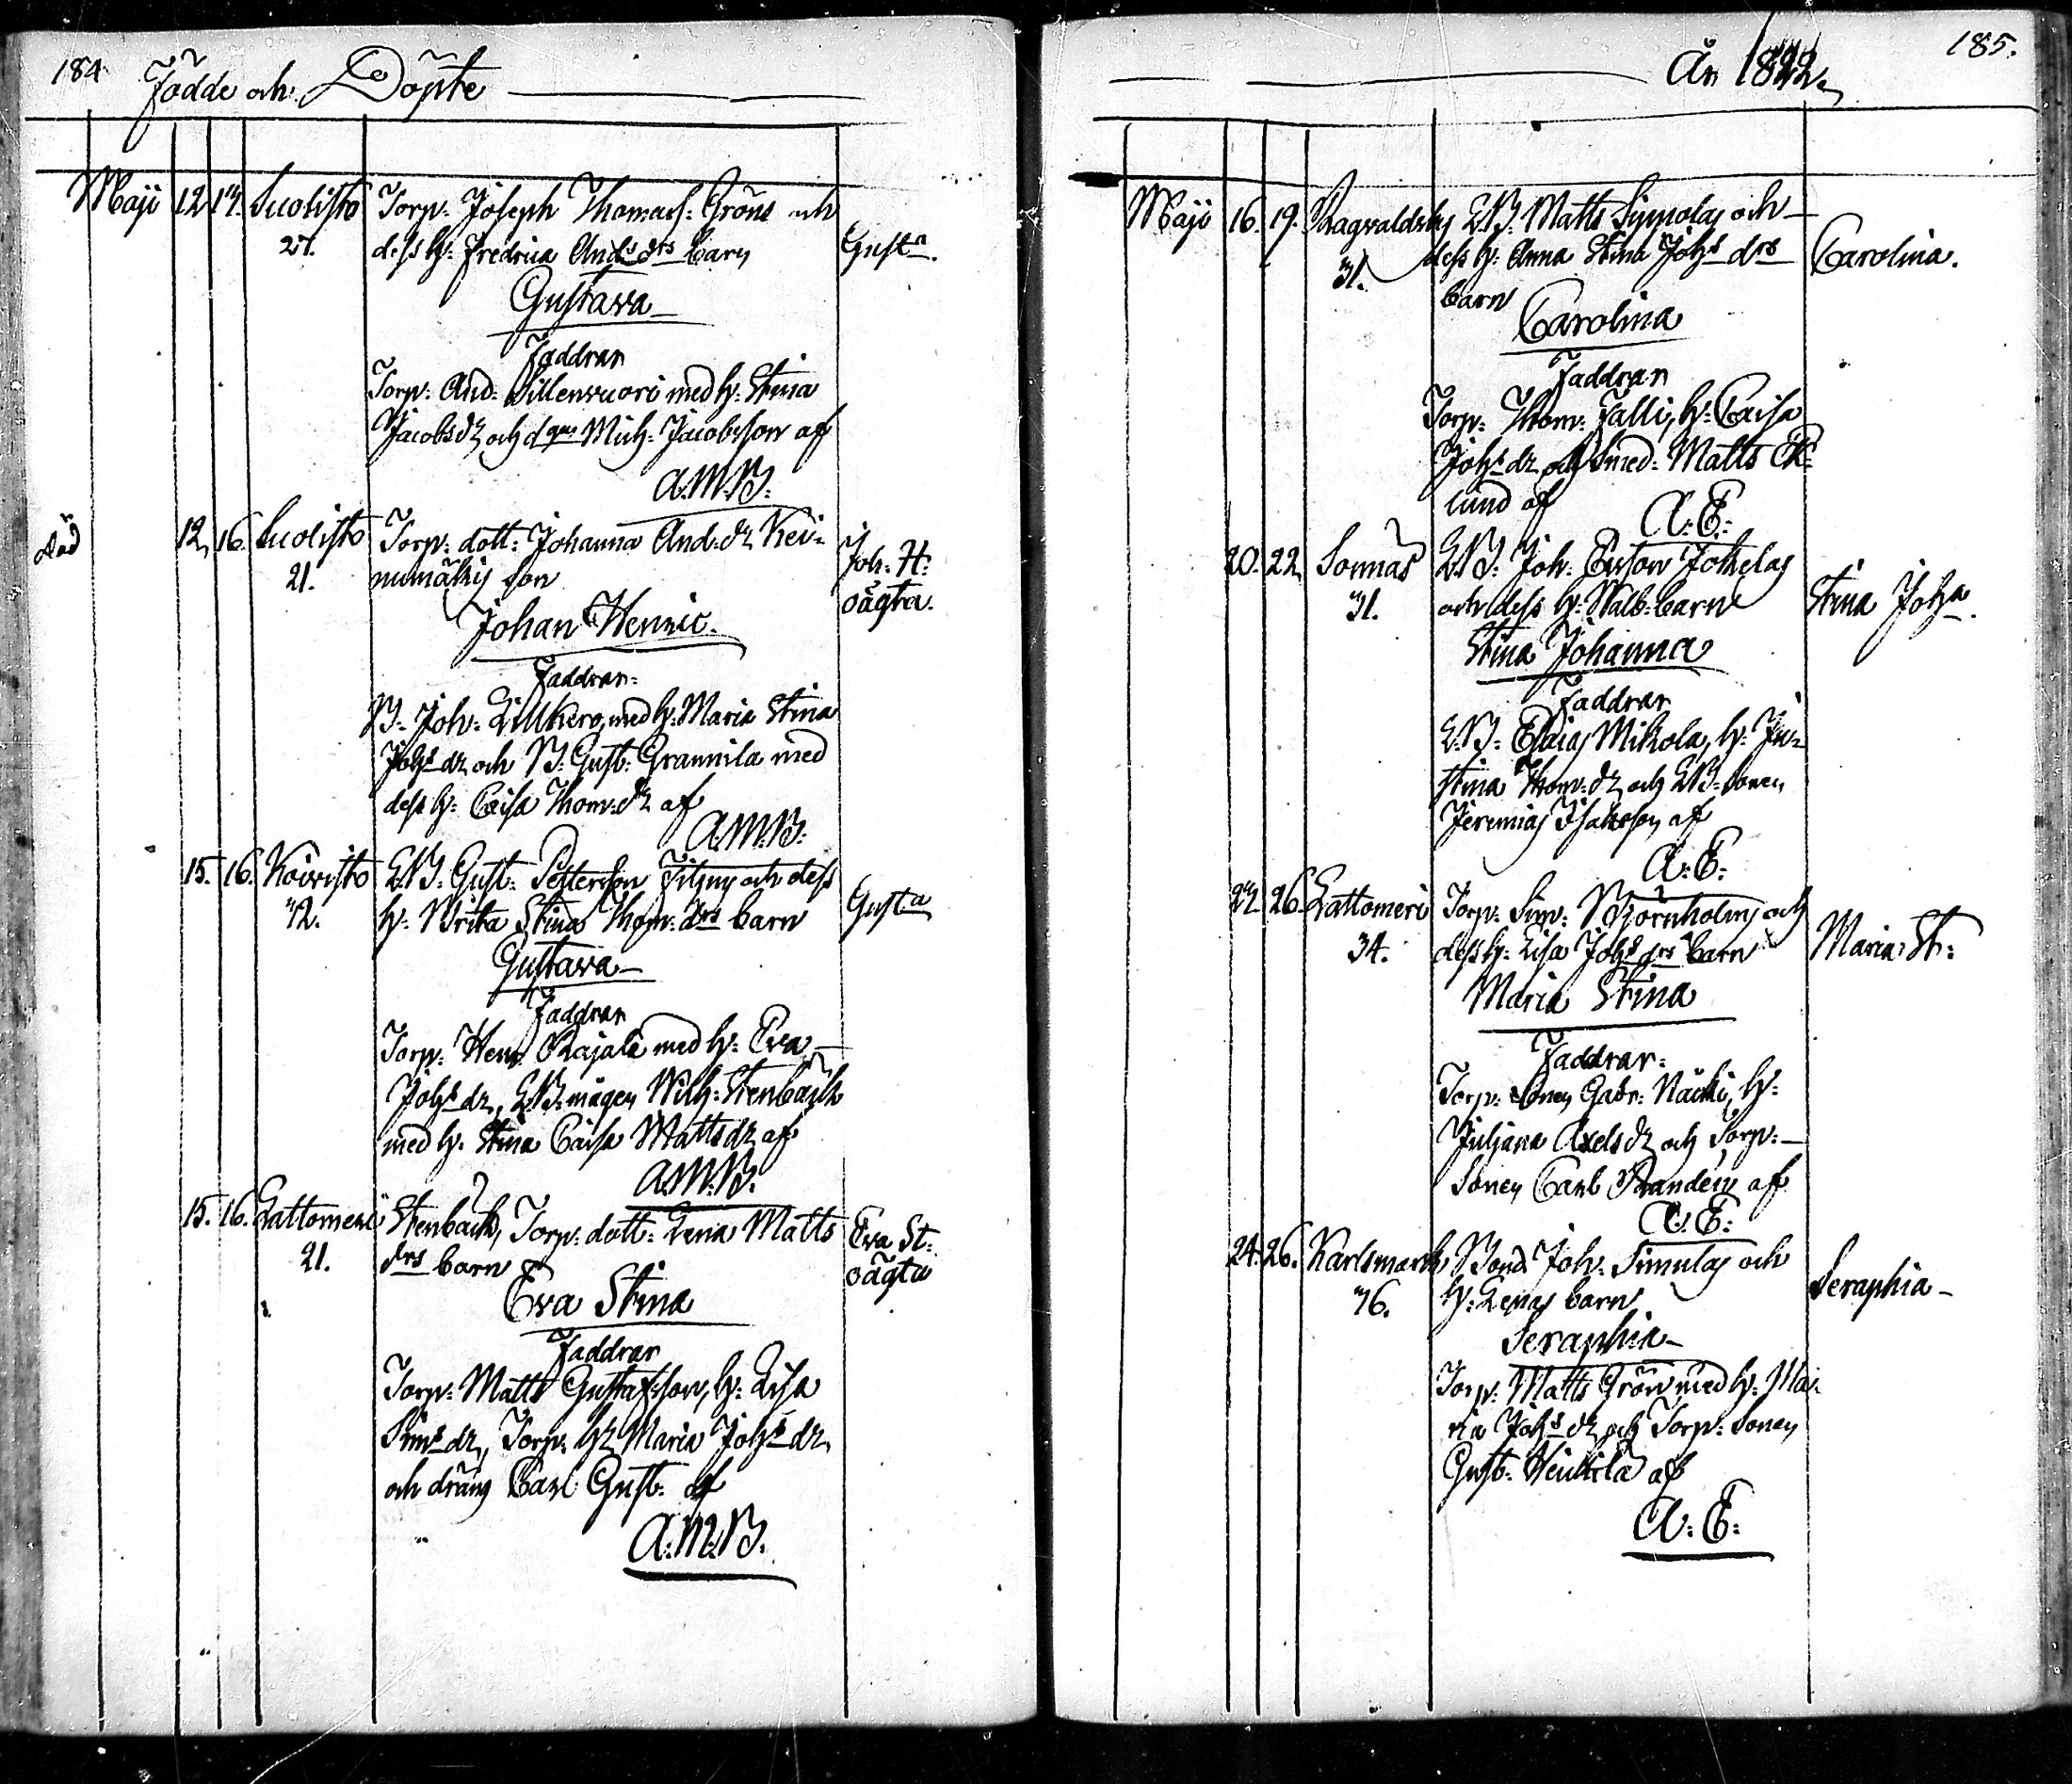 184.
Födde och Döpte
Maji 12 14. Suolisto Torp: Joseph Thomass: Gröns och
27. dess h: Fredrica Ands drs barn Gusta.
Gustava
Faddrar
Torp: And: Sillenvuori med h: Stina
Jacobs dr och d Mich: Jacobsson af
A.M.B.
död 12. 16. Suolisto Torp: dott: Johanna And: dr Kei-
21. numäkis son Joh: H:
oägta.
Johan Henric.
Faddrar:
B: Joh: Lillkero, med h: Maria Stina
Johs dr och B: Gust: Grannila med
dess h: Caisa Thom: dr af
A.M.B.
15. 16. Koivisto LB: Gust: Pettersson och dess
42. h: Brita Stina Thom: drs barn Gusta
Gustava
Faddrar
Torp: Henr: Rajala med h: Eva
Johs dr, LB: mågen Wilh: Stenbäck
med h: Stina Caisa Matts dr af
A.M.B.
15. 16. Lattomeri Stenbäck, Torp: dott: Lena Matts Eva St:
21. drs barn oägta
Eva Stina
Faddrar
Torp: Matts Gustafsson, h: Lisa
Sims dr, Torp: h: Maria Johs dr,
och dräng Carl Gust: af
A.M.B.
185.
År 1822.
Maji 16. 19. Ragvaldsby LB: Matts Sippolas och
31. dess h: Anna Stina Johs drs Carolina.
barn
Carolina
Faddrar
Torp: Thom: Falli, h: Caisa
Johs dr och Smed: Matts Ek-
lund af
A: E:
20. 22. Sonnäs LB: Joh: Ersson Jokelas
31. och dess h: Walb: barn Stina Joha.
Stina Johanna
Faddrar
LB: Esaias Mikola, h: Ju-
stina Thom: dr och LB: Sonen
Jeremias Isaksson af
A: E:
22. 26. Lattomeri Torp: Sim: Björnholms och
34. dess h: Lisa Johs drs barn Maria St:
Maria Stina
Faddrar:
Torp: Sonen Gabr: Näcki, h:
Juljana Axels dr och Torp:
Sonen Carl Randen af
A: E:
24. 26. Karlsmark Bond: Joh: Simulas och
76. h: Lenas barn Seraphia
Seraphia
Torp: Matts Grön med h: Ma-
ria Johs dr och Torp: Sonen
Gust: Heickilä af
A: E: